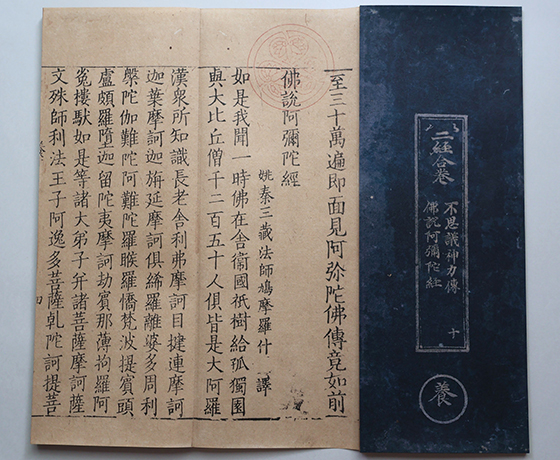 二經合卷
不思議神力傳
佛說阿彌陀經
十
養
至三十萬遍即面見阿弥陀佛傳竟如前
佛說阿彌陀經
姚秦三藏法師鳩摩羅什 譯
如是我聞一時佛在舍衞國祇樹給孤獨園
與大比丘僧千二百五十人俱皆是大阿羅
漢衆所知識長老舍利弗摩訶目揵連摩訶
迦葉摩訶迦旃延摩訶俱絺羅離婆多周利
槃陀伽難陀阿難陀羅睺羅憍梵波提賓頭
盧頗羅墮迦留陀夷摩訶劫賓那薄拘羅阿
㝹樓馱如是等諸大弟子并諸菩薩摩訶薩
文殊師利法王子阿逸多菩薩乹陀訶提菩